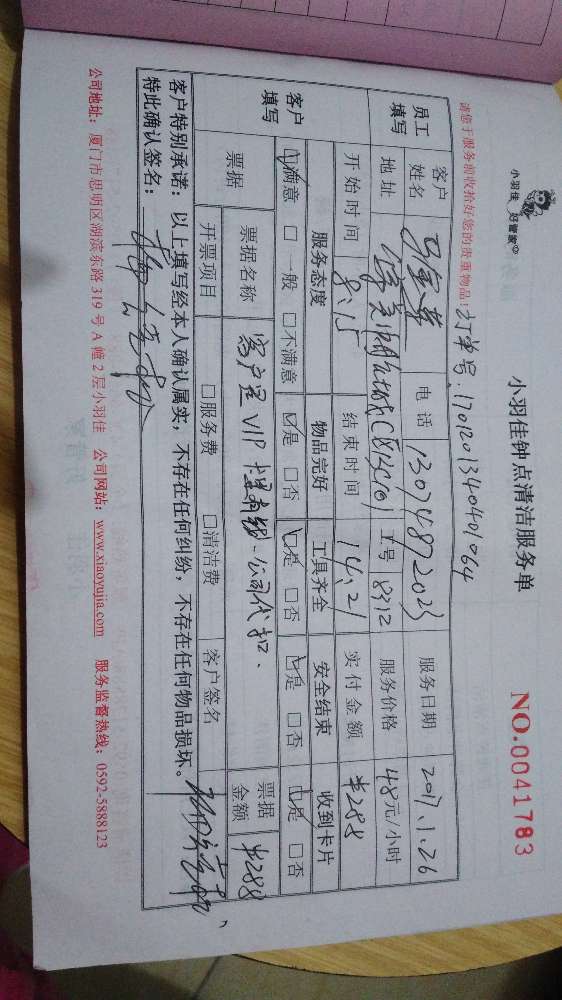 小羽佳 好管家
小羽佳钟点清洁服务单
NO.0041783
请您于服务前收拾好您的贵重物品!
订单号:1701201340401064
员工填写
客户姓名 电话 13074872023 服务日期 2017.1.26
地址 工号 8312 服务价格 48元/小时
开始时间 8:15 结束时间 14:21 实付金额 ¥288
客户填写
服务态度 物品完好 工具齐全 安全结束 收到卡片
☑满意 □一般 □不满意 ☑是 □否 ☑是 □否 ☑是 □否 ☑是 □否
票据 票据名称 客户是VIP 公司代扣. 票据金额 ¥288
开票项目 □服务费 □清洁费 客户签名
客户特别承诺: 以上填写经本人确认属实,不存在任何纠纷,不存在任何物品损坏。
特此确认签名:
公司地址: 厦门市思明区湖滨东路319号A幢2层小羽佳 公司网站: www.xiaoyujia.com 服务监督热线: 0592-5888123